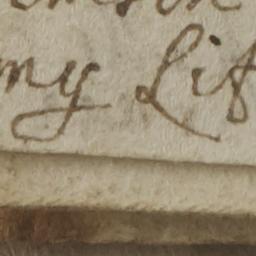 my Lif